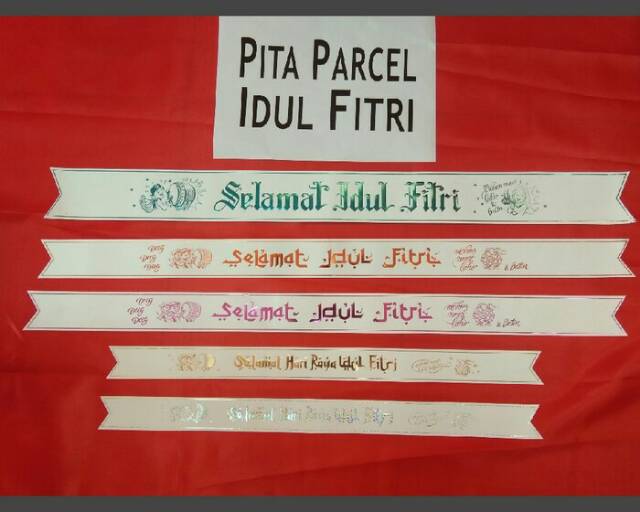 PITA PARCEL
IDUL FITRI
Selamat Idul Fitri
Selamat Idul Fitri
Selamat Idul Fitri
Selamat Hari Raya Idul Fitri
Selamat Hari Raya Idul Fitri